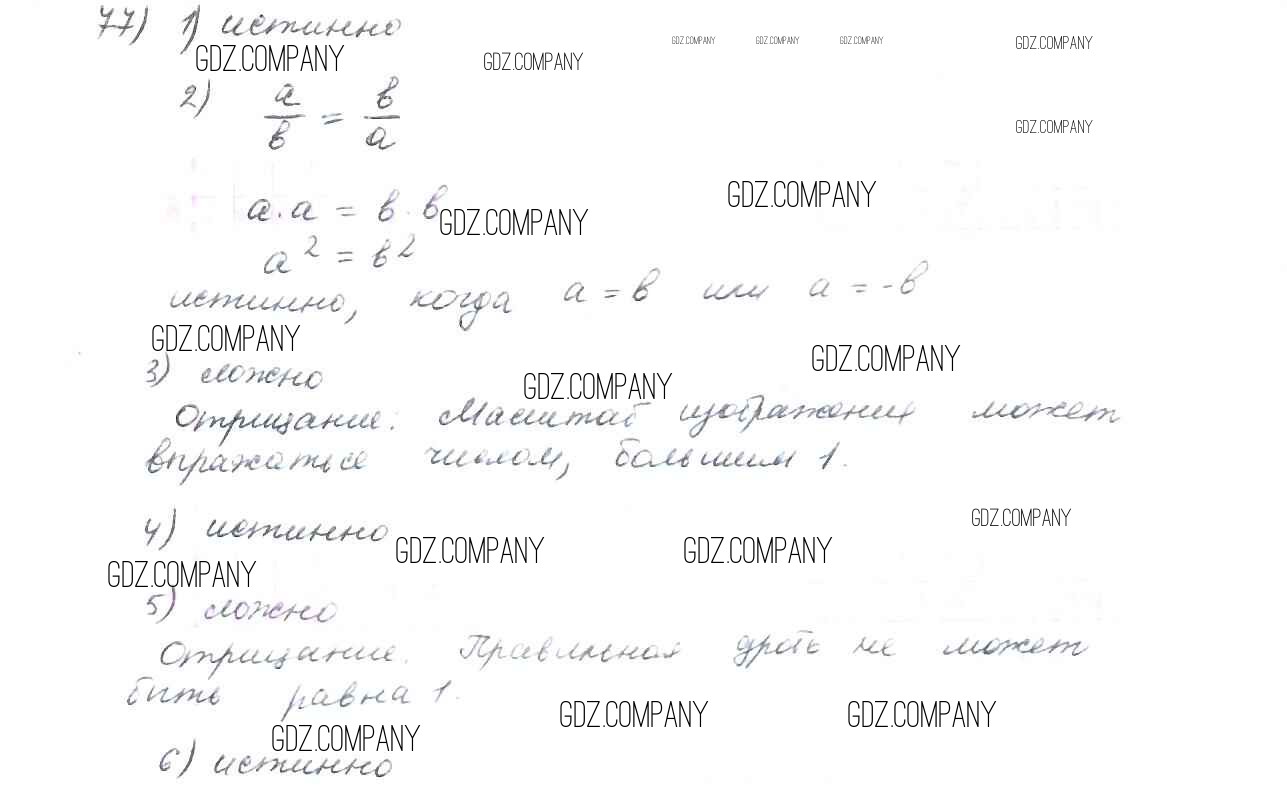 77) 1) истинно
GDZ.COMPANY GDZ.COMPANY GDZ.COMPANY GDZ.COMPANY GDZ.COMPANY GDZ.COMPANY
2) a/в = в/a
GDZ.COMPANY
GDZ.COMPANY
a·a = в·в GDZ.COMPANY
a² = в²
истинно, когда a = в или a = -в
GDZ.COMPANY GDZ.COMPANY
3) ложно GDZ.COMPANY
Отрицание: Масштаб изображения может
выражаться числом, большим 1.
GDZ.COMPANY
4) истинно GDZ.COMPANY GDZ.COMPANY
GDZ.COMPANY
5) ложно
Отрицание. Правильная дробь не может
быть равна 1.
GDZ.COMPANY GDZ.COMPANY GDZ.COMPANY
6) истинно